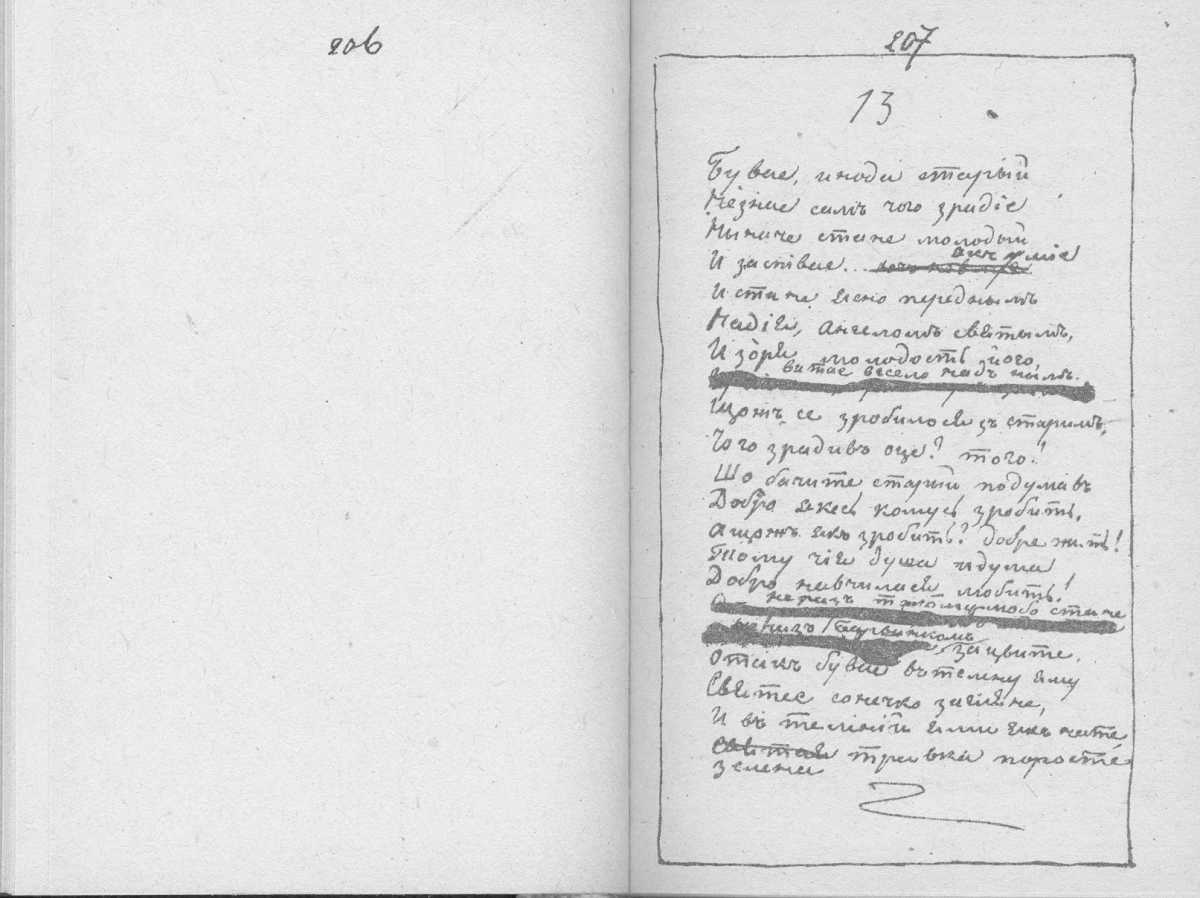 206
207
13
Бувае, иноди старый
Незнае самъ чого зрадіе
Ныначе стане молодый
И заспівае... якъ уміе
И стане ясно передъ нымъ
Надія, ангеломъ святымъ,
И зоря, молодость його,
витае весело надъ нымъ.
Щожъ се зробилося зъ старимъ,
Чого зрадивъ оце? того!
Що бачите старый подумавъ
Добро якесь комусь зробить,
Ащожъ якъ зробить? добре жить!
Тному чія душа идума
Добро навчилася любить!
неразъ такому любо стане
неразъ барвинкомъ
зацвите.
Отакъ бувае въ темну яму
Святее сонечко загляне,
И въ темній ями якъ нате
травка поросте
зелена